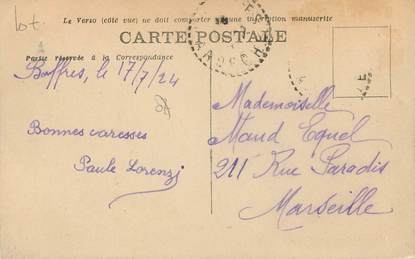 lot.
Le Verso (côté vue) ne doit comporter aucune inscription manuscrite
CARTE POSTALE
Partie réservée à la Correspondance
Boffres, le 17/7/24
Bonnes caresses
Paule Lorenzi
Mademoiselle
Maud Equel
211 Rue Paradis
Marseille